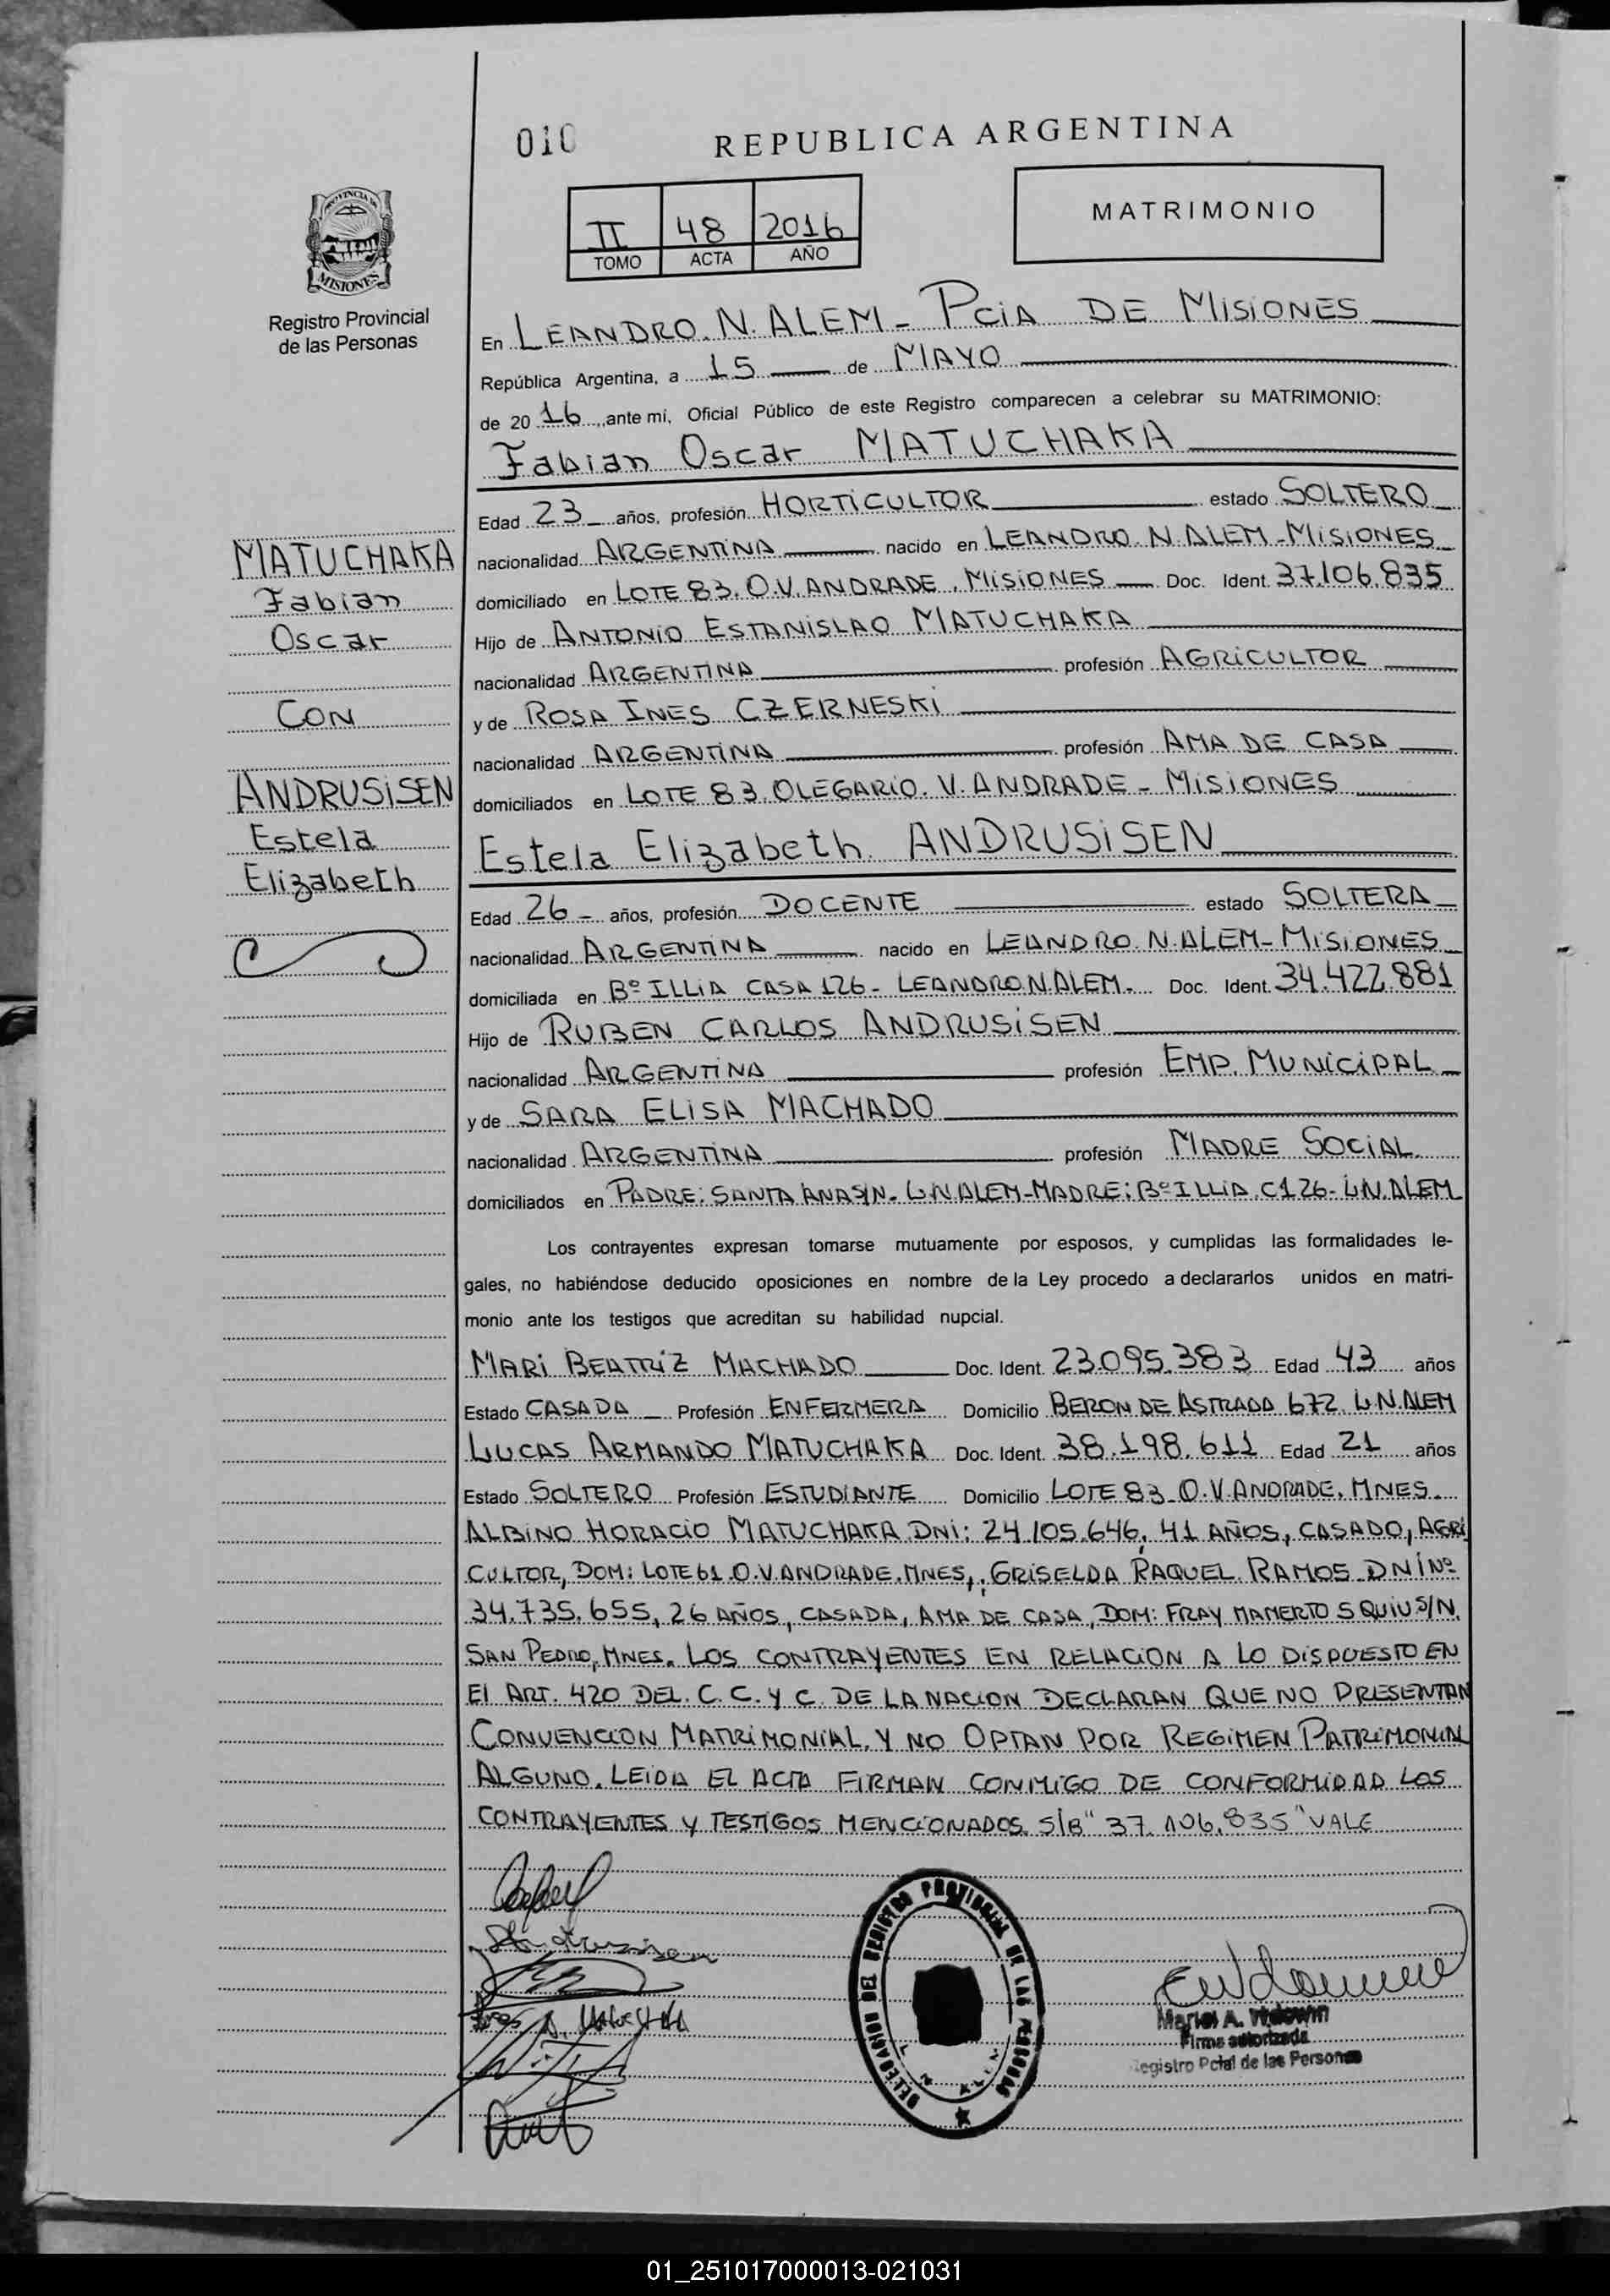 010
REPUBLICA ARGENTINA
II 48 2016
TOMO ACTA AÑO
MATRIMONIO
PROVINCIA DE
MISIONES
Registro Provincial
de las Personas
En LEANDRO. N. ALEM - PCiA DE MiSiONES
República Argentina, a 15 de MAYO
de 20 16, ante mí, Oficial Público de este Registro comparecen a celebrar su MATRIMONIO:
Fabian Oscar MATUCHAKA
Edad 23 años, profesión HORTiCULTOR estado SOLTERO
MATUCHAKA
Fabian
Oscar
CON
ANDRUSiSEN
Estela
Elizabeth
nacionalidad ARGENTINA nacido en LEANDRO. N. ALEM - MiSiONES
domiciliado en LOTE 83. O.V. ANDRADE, MiSiONES Doc. Ident. 37.106.835
Hijo de ANTONIO ESTANiSLAO MATUCHAKA
nacionalidad ARGENTINA profesión AGRiCULTOR
y de ROSA INES CZERNESKi
nacionalidad ARGENTiNA profesión AMA DE CASA
domiciliados en LOTE 83. OLEGARiO. V. ANDRADE - MiSiONES
Estela Elizabeth. ANDRUSiSEN
Edad 26 - años, profesión DOCENTE estado SOLTERA
nacionalidad ARGENTINA nacido en LEANDRO. N. ALEM - MiSiONES
domiciliada en Bº ILLIA CASA 126 - LEANDRO N. ALEM. Doc. Ident. 34.422.881
Hijo de RUBEN CARLOS ANDRUSiSEN
nacionalidad ARGENTiNA profesión EMP. MUNiCiPAL
y de SARA ELiSA MACHADO
nacionalidad ARGENTiNA profesión MADRE SOCiAL.
domiciliados en PADRE: SANTA ANA S/N - L.N. ALEM - MADRE: Bº ILLIA. C 126 - L.N. ALEM
Los contrayentes expresan tomarse mutuamente por esposos, y cumplidas las formalidades le-
gales, no habiéndose deducido oposiciones en nombre de la Ley procedo a declararlos unidos en matri-
monio ante los testigos que acreditan su habilidad nupcial.
MARi BEATRiZ MACHADO Doc. Ident. 23.095.383 Edad 43 años
Estado CASADA Profesión ENFERMERA Domicilio BERON DE ASTRADA 672. L.N. ALEM
LUCAS ARMANDO MATUCHAKA Doc. Ident. 38.198.611 Edad 21 años
Estado SOLTERO Profesión ESTUDiANTE Domicilio LOTE 83 - O.V. ANDRADE. MNES.
ALBiNO HORACiO MATUCHAKA DNi: 24.105.646, 41 AÑOS, CASADO, AGRi
CULTOR, DOM: LOTE 61. O.V. ANDRADE. MNES,; GRiSELDA RAQUEL. RAMOS DNi Nº
34.735.655, 26 AÑOS, CASADA, AMA DE CASA, DOM: FRAY MAMERTO S QUIU S/N.
SAN PEDRO, MNES. LOS CONTRAYENTES EN RELACiON A LO DiSPUESTO EN
El ART. 420 DEL. C. C. Y C. DE LA NACiON DECLARAN QUE NO PRESENTAN
CONVENCiON MATRiMONiAL. Y NO OPTAN POR REGiMEN PATRiMONIAL
ALGUNO. LEiDA EL ACTA FiRMAN CONMiGO DE CONFORMiDAD LOS
CONTRAYENTES Y TESTiGOS MENCiONADOS. S/B "37.106.835" VALE
Andrusisen
DELEGACION DEL REGISTRO PROVINCIAL DE LAS PERSONAS
Mariel A.
Firma autorizada
Registro Pcial de las Personas
01_251017000013-021031